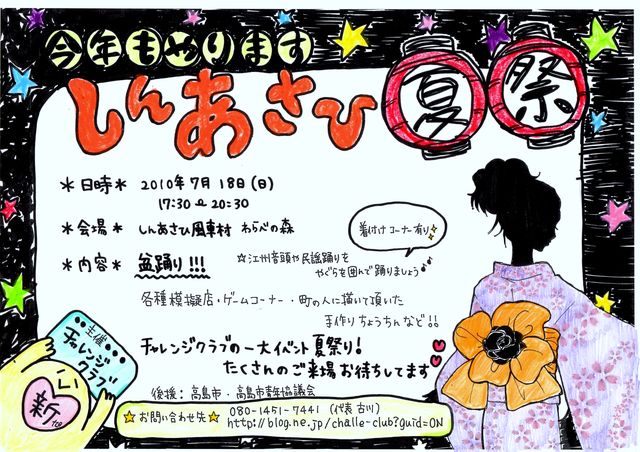 今年もやります
しんあさひ夏祭
＊日時＊ 2010年7月18日(日)
17:30〜20:30
＊会場＊ しんあさひ風車村 わらべの森
着付けコーナー有り
＊内容＊ 盆踊り!!! ☆江州音頭や民謡踊りを
やぐらを囲んで踊りましょう♪
各種模擬店・ゲームコーナー・町の人に描いて頂いた
手作りちょうちんなど!!
チャレンジクラブの一大イベント夏祭り!
たくさんのご来場お待ちしてます
主催
チャレンジ
クラブ
新
後援：高島市・高島市青年協議会
☆お問い合わせ先☆ 080-1451-7441 (代表 古川)
http://blog.ne.jp/challe-club?guid=ON